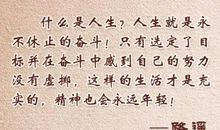 什么是人生？人生就是永
不休止的奋斗！只有选定了目
标并在奋斗中感到自己的努力
没有虚掷，这样的生活才是充
实的，精神也会永远年轻！
——路遥